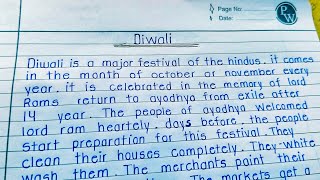 Page No:
Date:
PW
Diwali
Diwali is a major festival of the hindus. it comes
in the month of october or november every
year. it is celebrated in the memory of lord
Rams return to ayodhya from exile after
14 year. The people of ayodhya welcomed
lord ram heartely. days before, the people
start preparation for this festival. They
clean their houses completely. They white
wash them. The merchants paint their
The markets get a